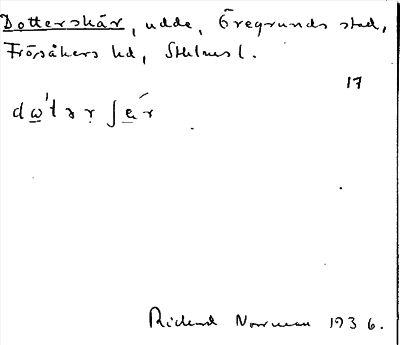 Dotterskär, udde, Öregrunds stad,
Frösåkers hd, Sthlms l.
17
dω̲'təṛʃe̲ŕ
Rickard Norrman 1936.